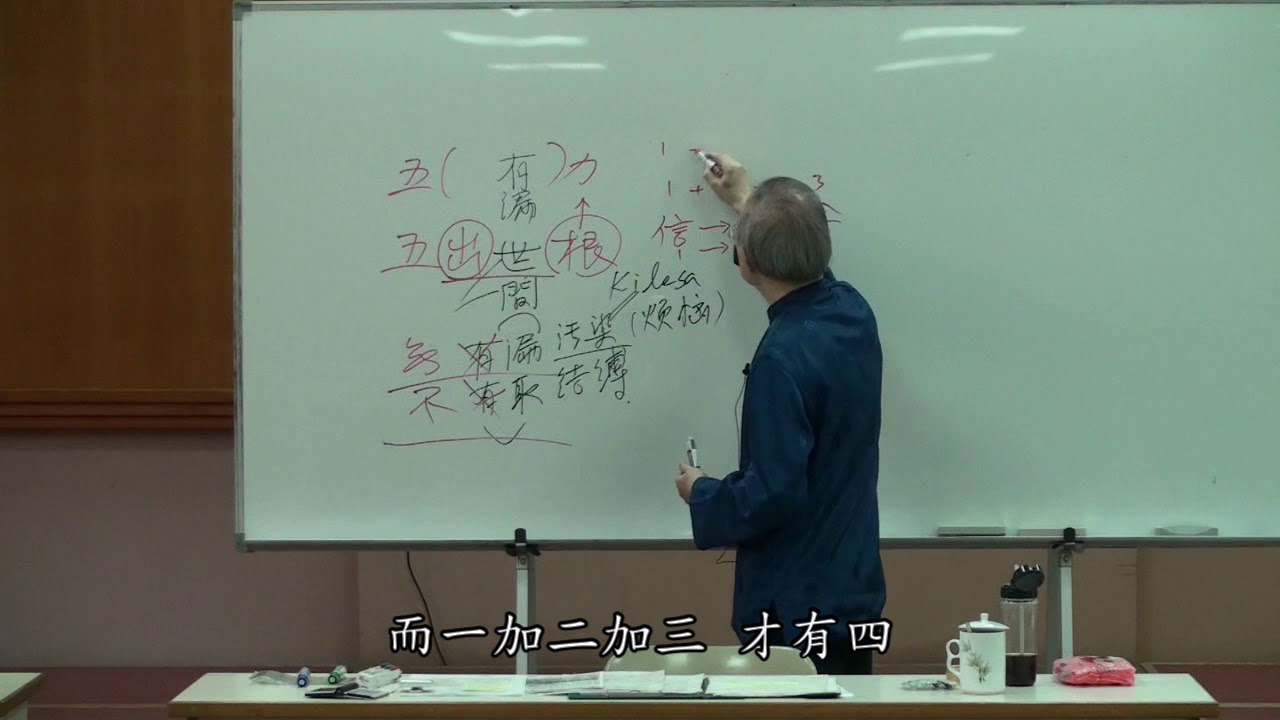 五( 有漏 )力
五出世間根
Kilesa
無有漏 污染 (煩惱)
不有取 結縛.
1
1 + 3
信→
1 →
而一加二加三 才有四